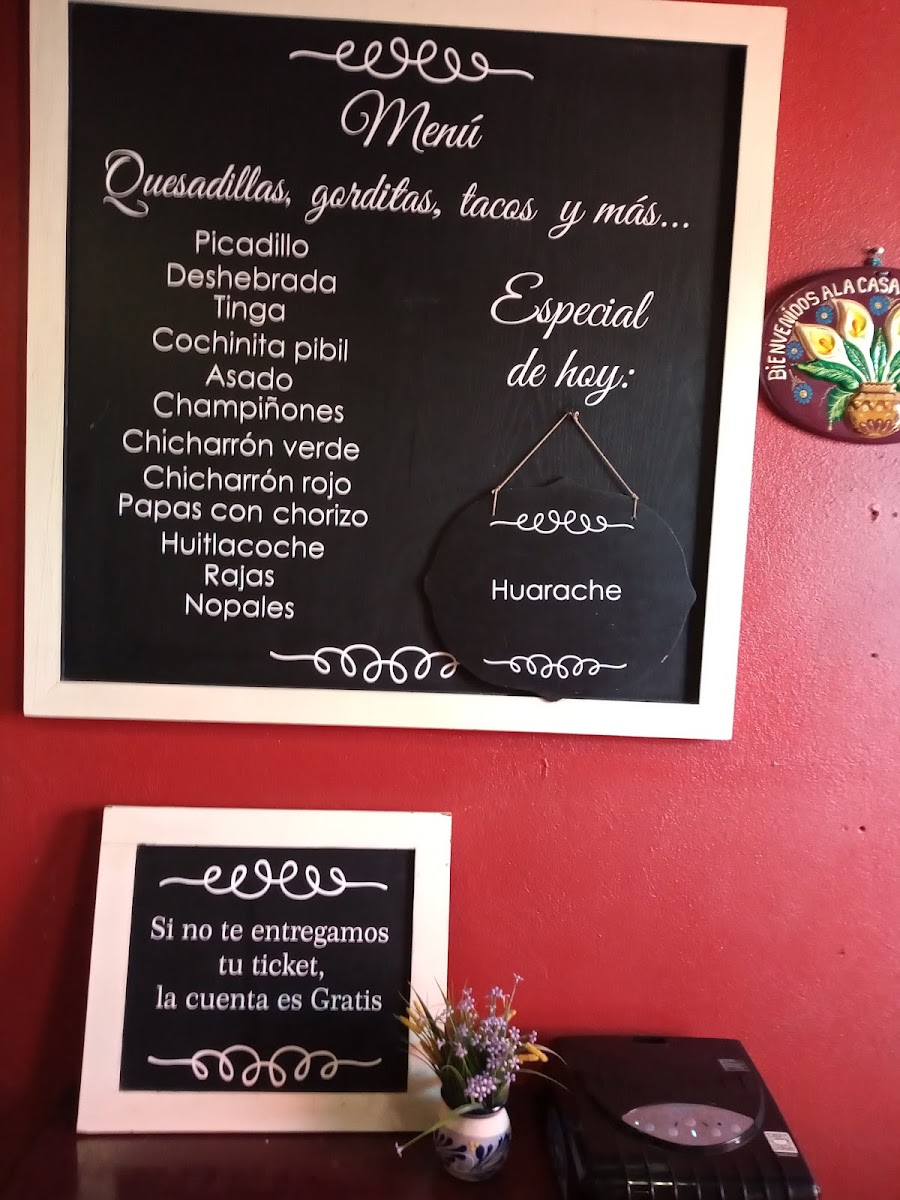 Menú
Quesadillas, gorditas, tacos y más...
Picadillo
Deshebrada
Tinga
Cochinita pibil
Asado
Champiñones
Chicharrón verde
Chicharrón rojo
Papas con chorizo
Huitlacoche
Rajas
Nopales
Especial
de hoy:
Huarache
BIENVENIDOS A LA CASA
Si no te entregamos
tu ticket,
la cuenta es Gratis